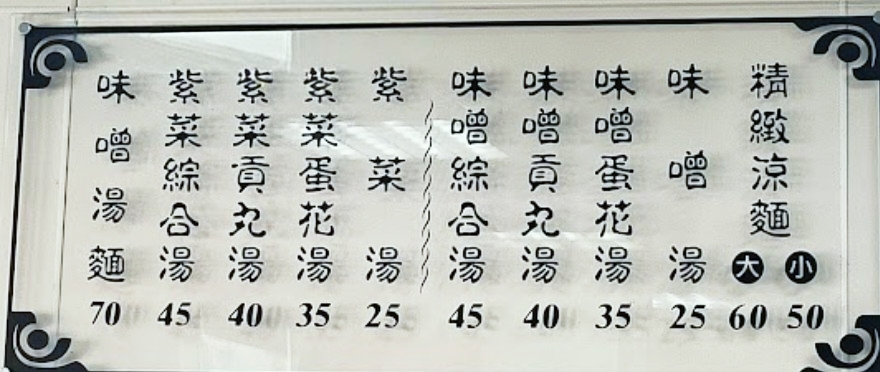 精緻涼麵
大 小
60 50
味噌湯
25
味噌蛋花湯
35
味噌貢丸湯
40
味噌綜合湯
45
紫菜湯
25
紫菜蛋花湯
35
紫菜貢丸湯
40
紫菜綜合湯
45
味噌湯麵
70